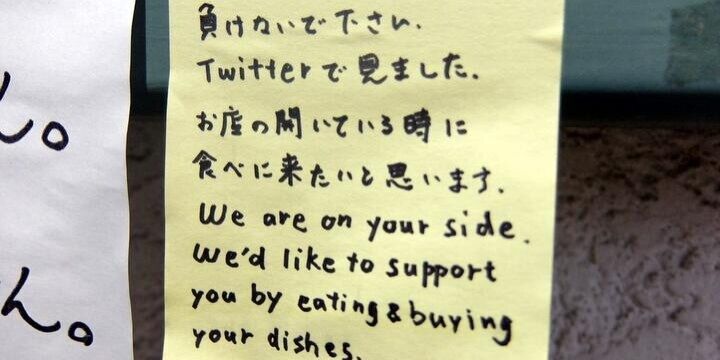 負けないで下さい.
Twitterで見ました.
お店の開いている時に
食べに来たいと思います.
We are on your side.
We'd like to support
you by eating & buying
your dishes.
ん。
ん。